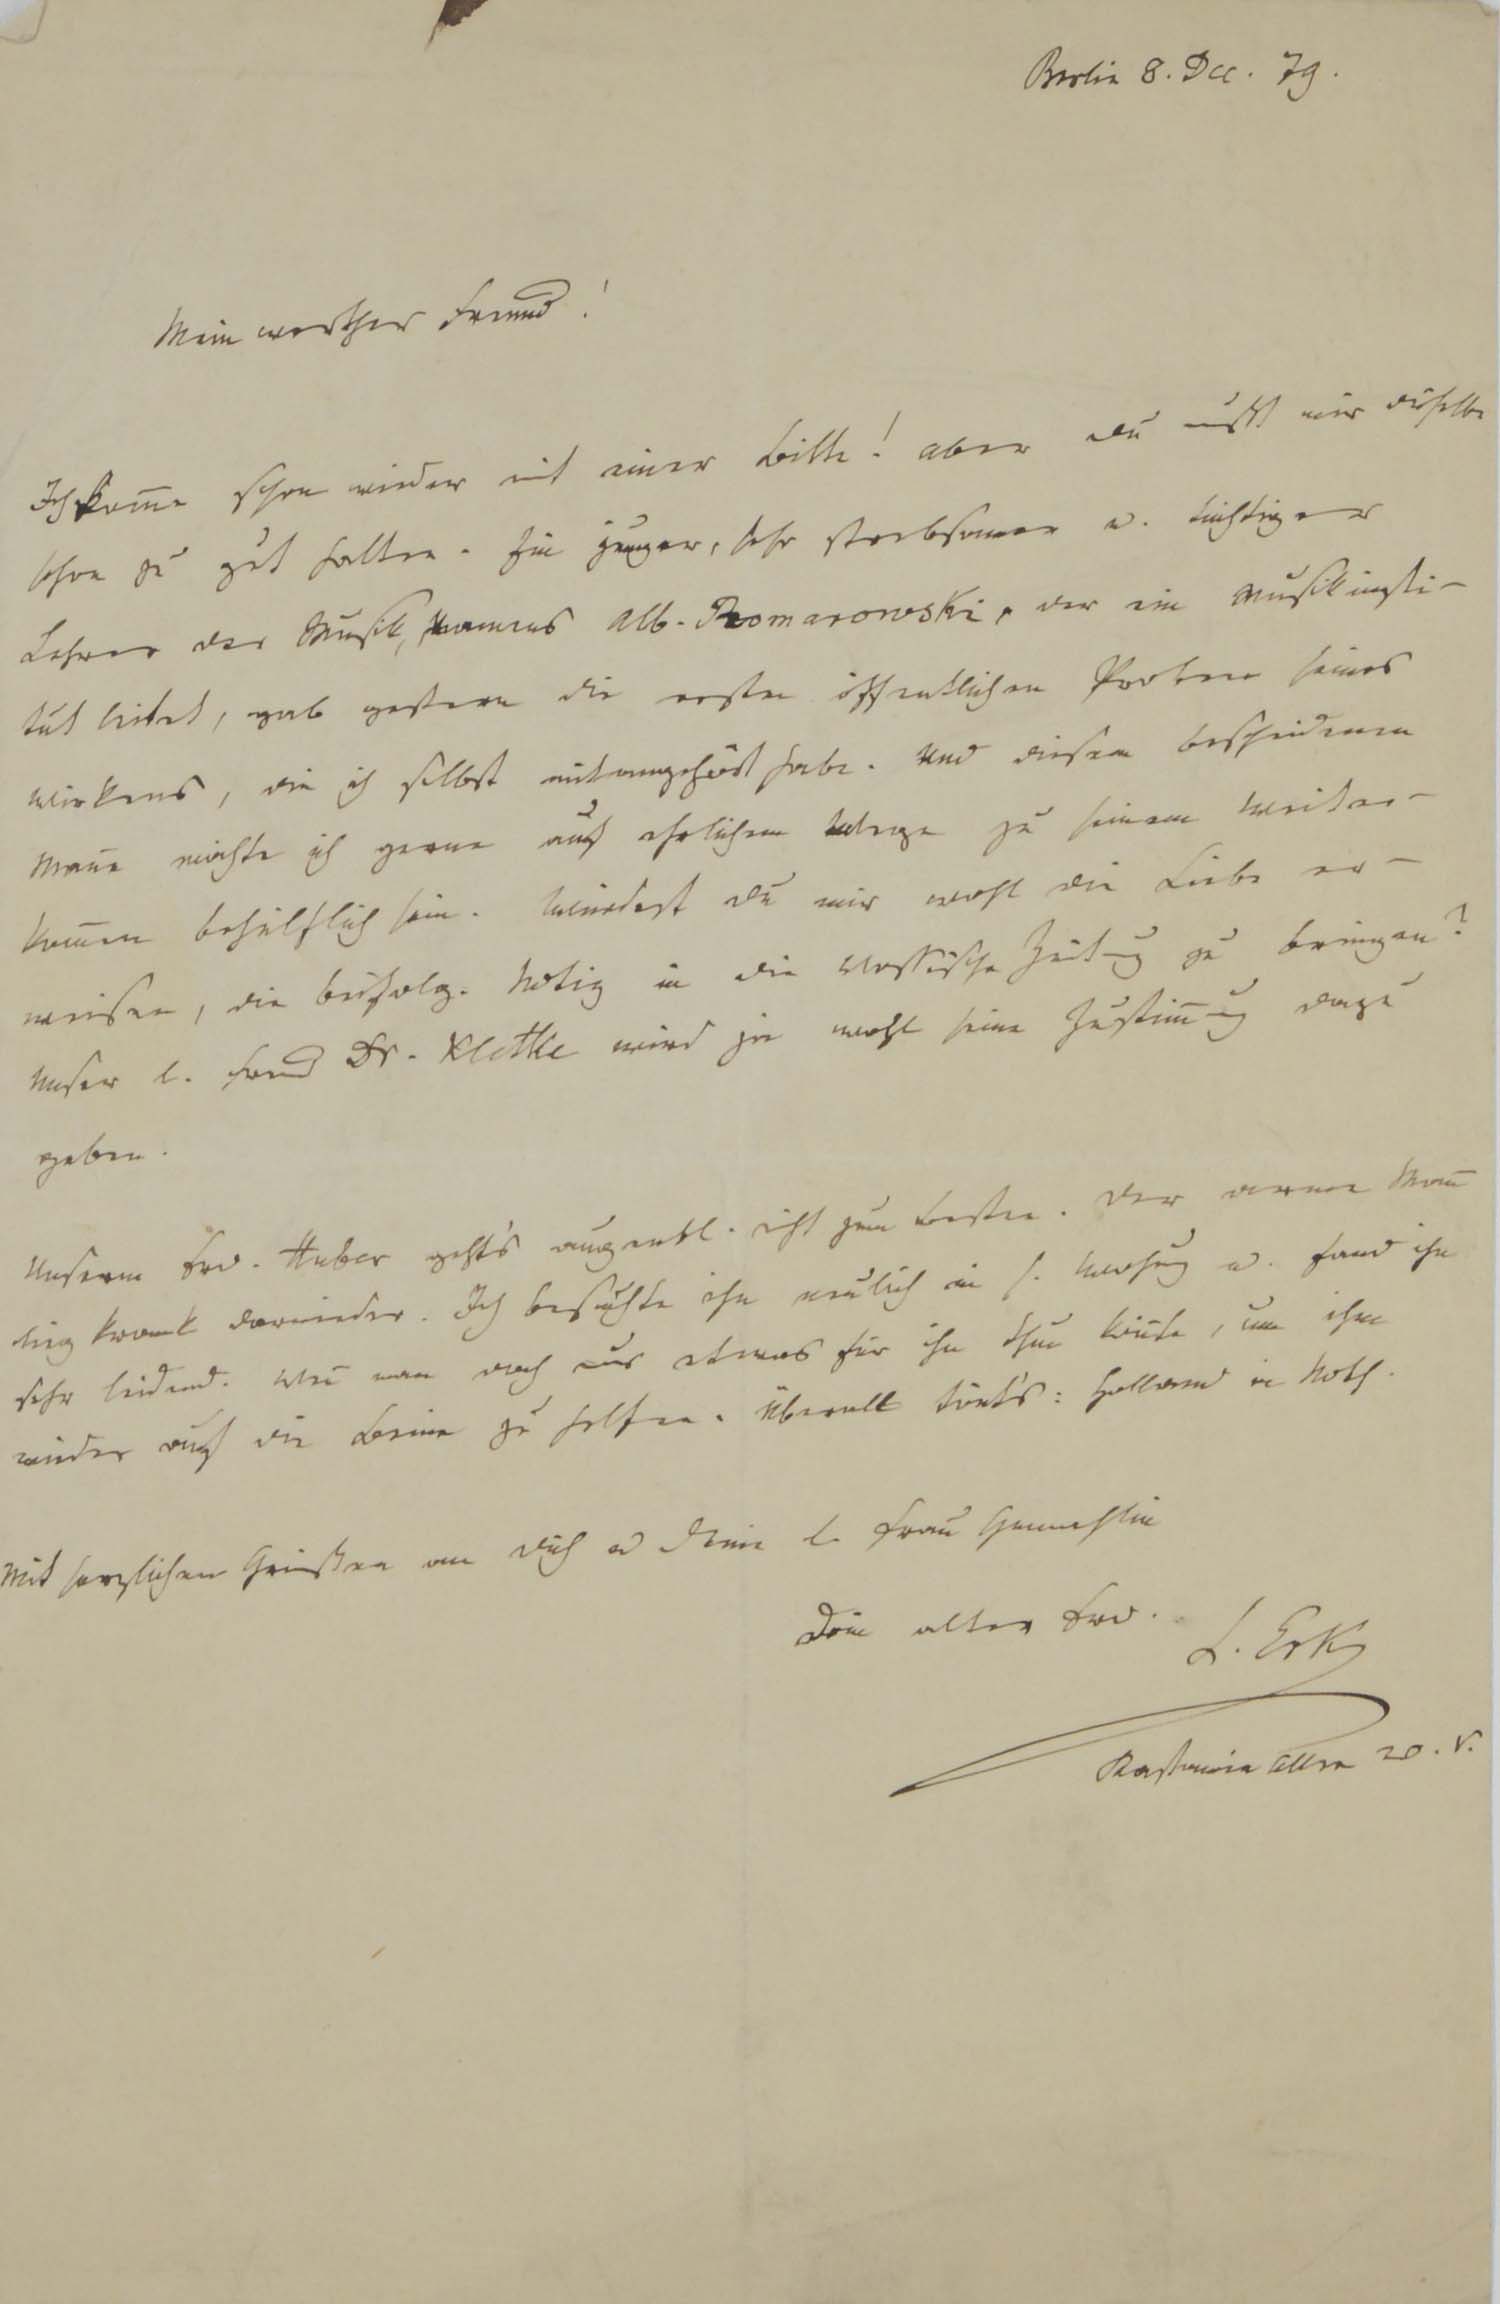 Berlin 8. Dec. 79.
Mein werther Freund!
Ich kom̄e schon wieder mit einer Bitte! Aber Du mußt mir dieselbe
schon zu gut halten. Ein junger, sehr strebsamer u. tüchtiger
Lehrer der Musik, Namens Alb. Romarowski, der ein Musikinsti-
tut leitet, gab gestern die ersten öffentlichen Proben seines
Wirkens, die ich selbst mitangehört habe. Und diesem bescheidenen
Man̄e möchte ich gerne auf ehrlichem Wege zu seinem Weiter-
kom̄en behülflich sein. Würdest Du mir wohl die Liebe er-
weisen, die beifolg. Notiz in die Vossische Zeitung zu bringen?
Unser l. Freund Dr. Kletke wird ja wohl seine Zustim̄ung dazu
geben.
Unserm Frd. Huber geht's augenbl. nicht zum Besten. Der arme Man̄
liegt krank darnieder. Ich besuchte ihn neulich in s. Wohnung u. fand ihn
sehr leidend. Wen̄ man doch nur etwas für ihn thun kön̄te, um ihm
wieder auf die Beine zu helfen. Überall tönt's: Holland in Noth.
Mit herzlichen Grüßen an Dich u Deine l. Frau Gemahlin
Dein alter Frd.
L. Erk
Kastanien Allee 20. V.